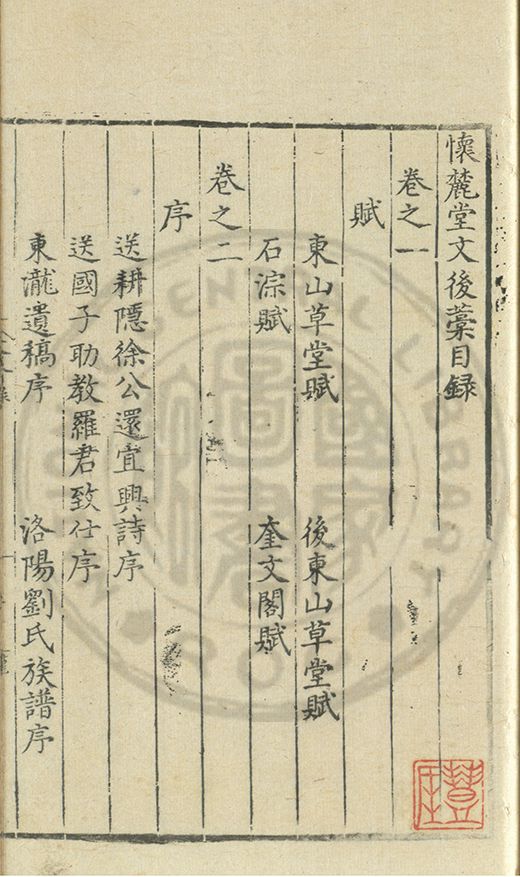 懷麓堂文後藁目録
卷之一
賦
東山草堂賦 後東山草堂賦
石淙賦 奎文閣賦
卷之二
序
送耕隱徐公還宜興詩序
送國子助教羅君致仕序
東瀧遺稿序 洛陽劉氏族譜序